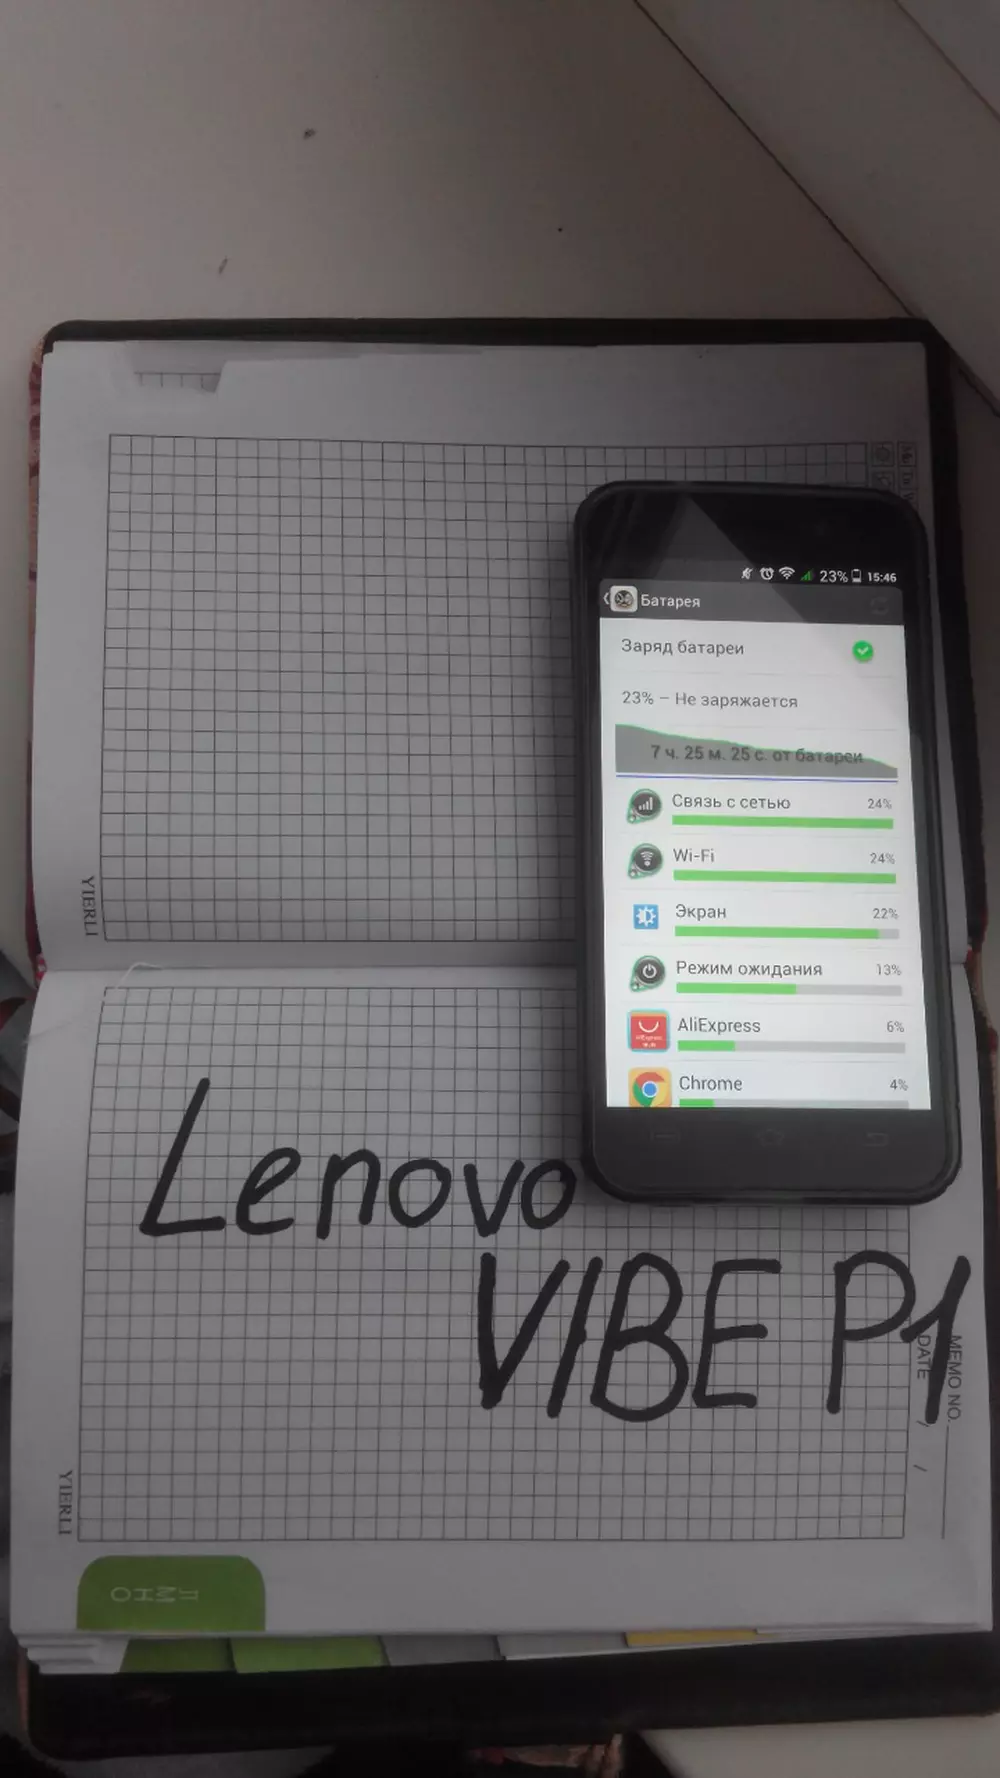 23% 15:46
Батарея
Заряд батареи
23% – Не заряжается
7 ч. 25 м. 25 с. от батареи
Связь с сетью 24%
Wi-Fi 24%
Экран 22%
Режим ожидания 13%
AliExpress 6%
Chrome 4%
YIERLI
Lenovo
VIBE P1
MEMO NO.
DATE / /
YIERLI
ЛМНО